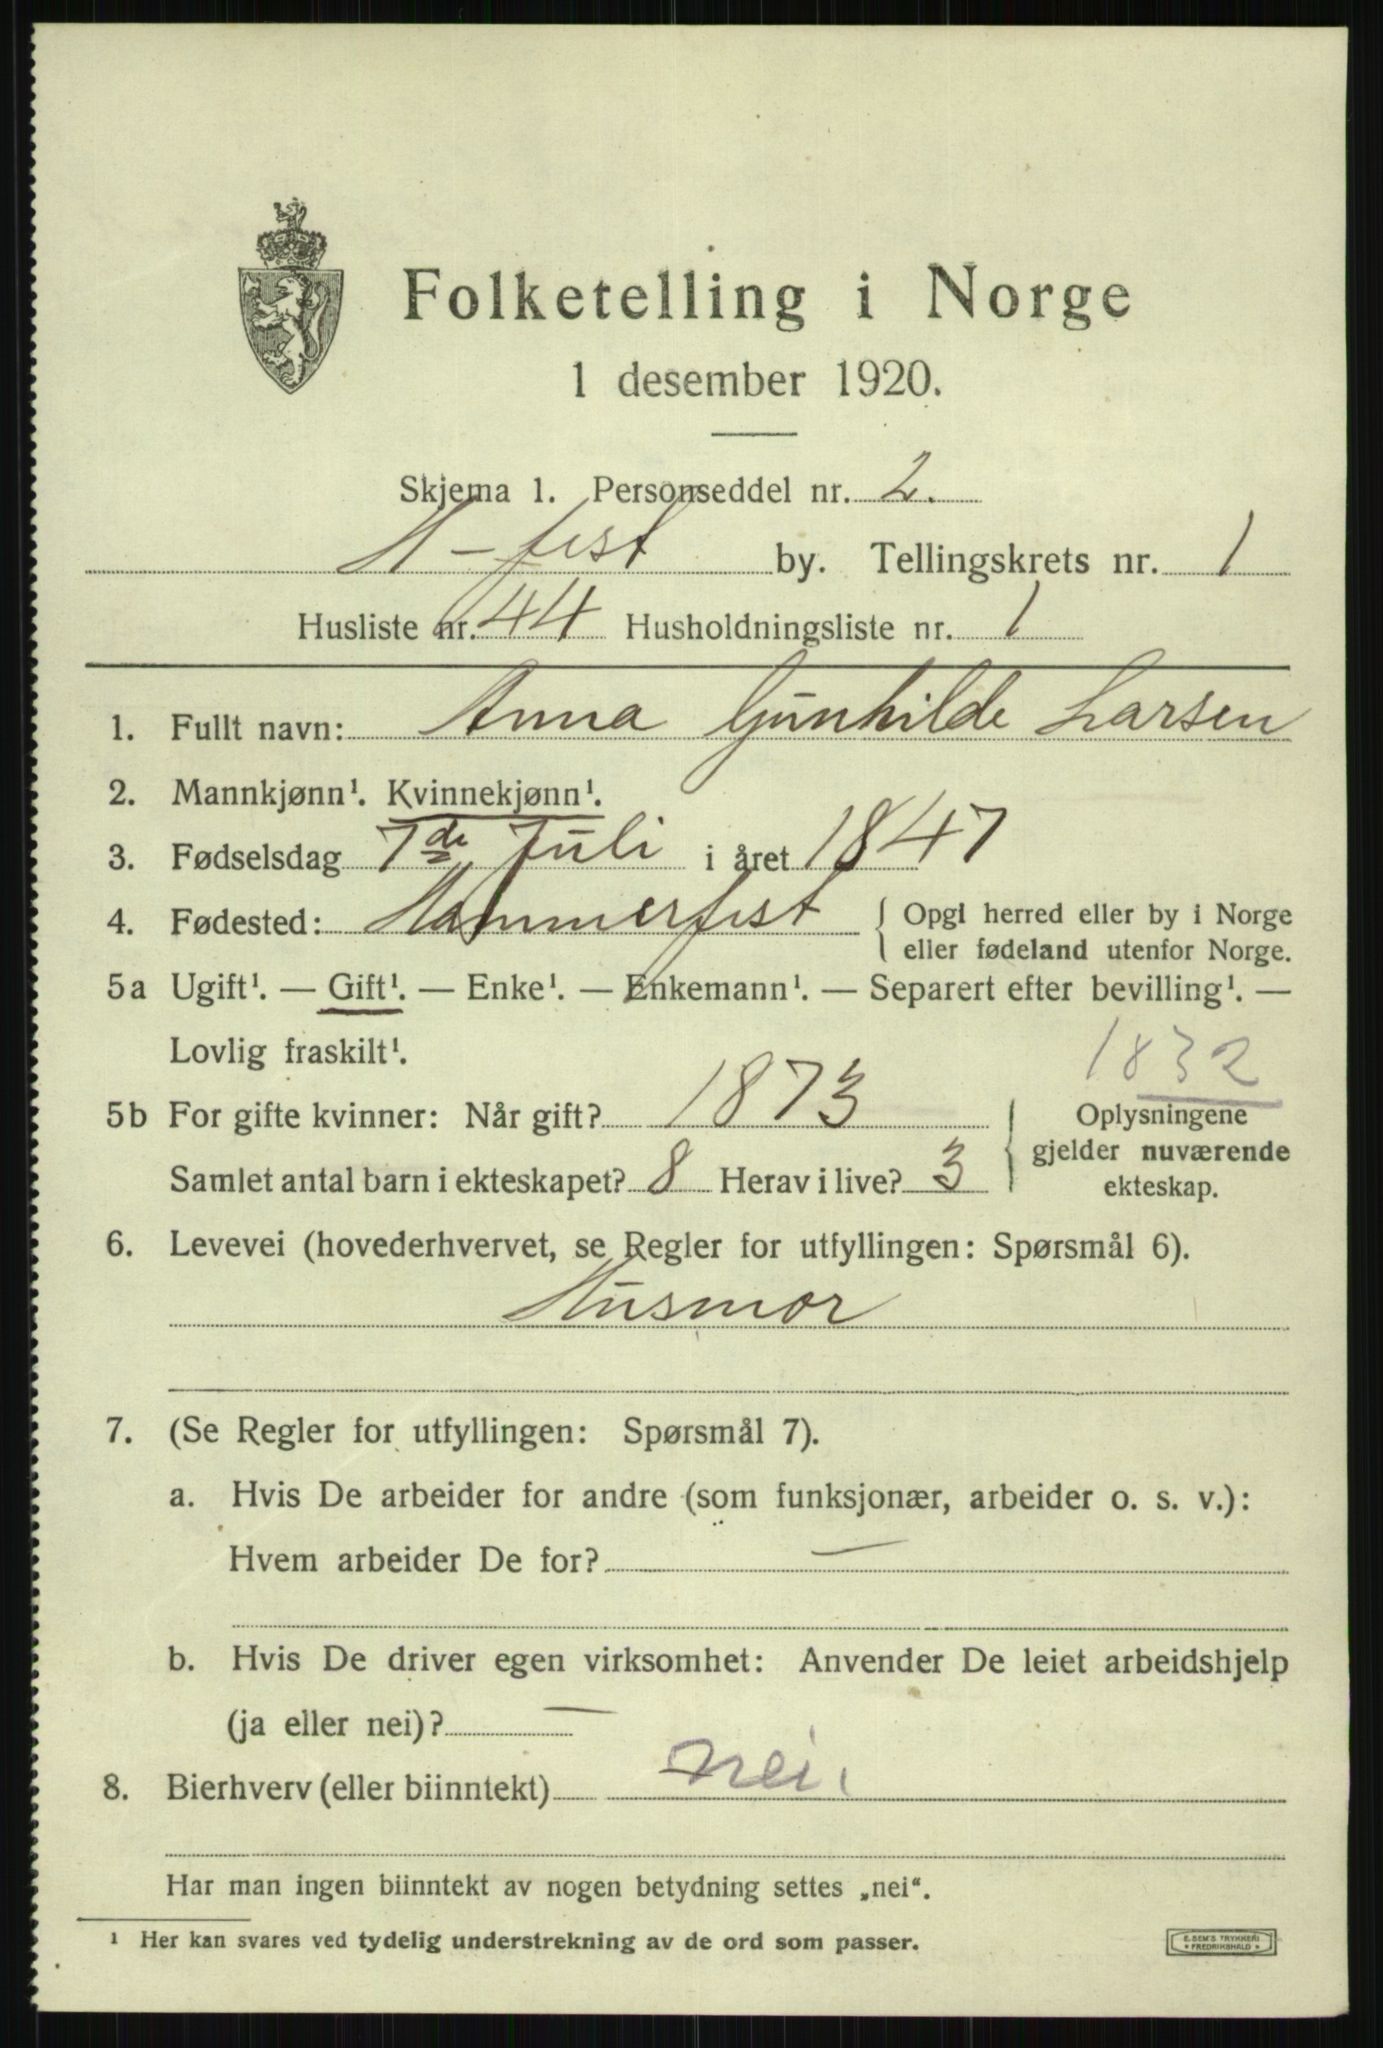 Folketelling i Norge
1 desember 1920.
Skjema 1. Personseddel nr. 2.
H-fest by. Tellingskrets nr. 1
Husliste nr. 44 Husholdningsliste nr. 1
1. Fullt navn: Anna Gunhilde Larsen
2. Mannkjønn¹. Kvinnekjønn¹.
3. Fødselsdag 7de Juli i året 1847
4. Fødested: Hammerfest { Opgi herred eller by i Norge
eller fødeland utenfor Norge.
5a Ugift¹. — Gift¹. — Enke¹. — Enkemann¹. — Separert efter bevilling¹. —
Lovlig fraskilt¹.
1832
5b For gifte kvinner: Når gift? 1873 Oplysningene
gjelder nuværende
Samlet antal barn i ekteskapet? 8 Herav i live? 3 ekteskap.
6. Levevei (hovederhvervet, se Regler for utfyllingen: Spørsmål 6).
Husmor
7. (Se Regler for utfyllingen: Spørsmål 7).
a. Hvis De arbeider for andre (som funksjonær, arbeider o. s. v.):
Hvem arbeider De for? —
b. Hvis De driver egen virksomhet: Anvender De leiet arbeidshjelp
(ja eller nei)? —
8. Bierhverv (eller biinntekt) nei.
Har man ingen biinntekt av nogen betydning settes „nei“.
¹ Her kan svares ved tydelig understrekning av de ord som passer.
E. SEM'S TRYKKERI
* FREDRIKSHALD *